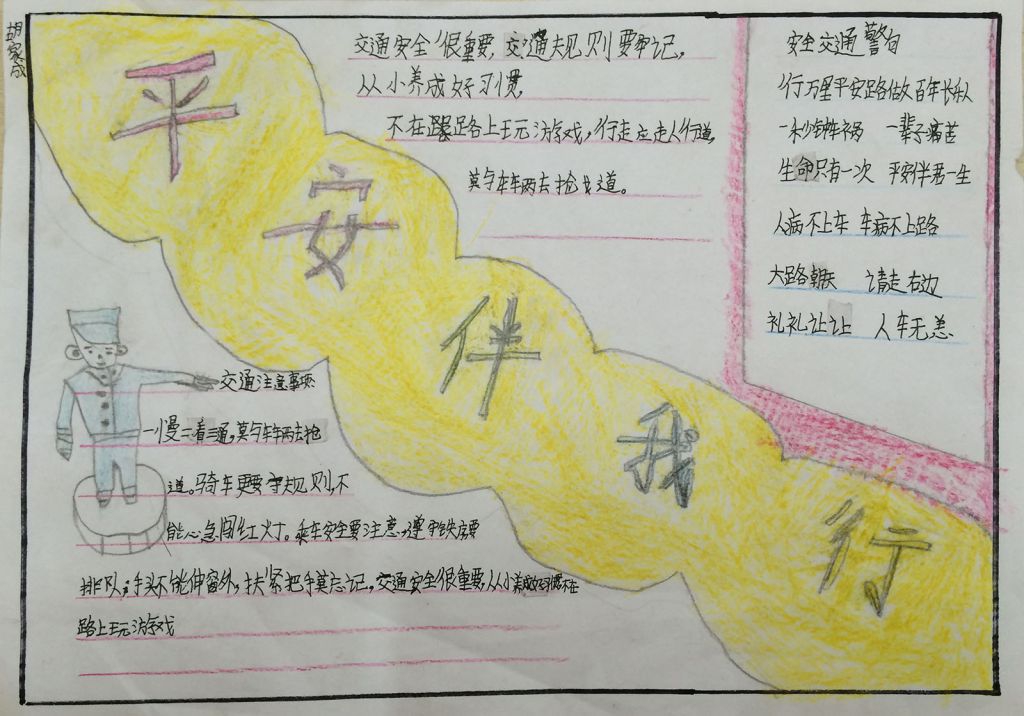 胡家成
平安伴我行
交通安全很重要,交通规则要牢记,
从小养成好习惯,
不在路上玩游戏,行走应走人行道,
莫与车两去抢道。
安全交通警句
行万里平安路做百年长队
一秒钟车祸 一辈子痛苦
生命只有一次 平安伴君一生
人病不上车 车病不上路
大路朝天 请走右边
礼礼让让 人车无恙
交通注意事项
一慢二看三通,莫与车两去抢
道。骑车更要守规则,不
能心急闯红灯。乘车安全要注意,遵守秩序要
排队;手头不能伸窗外,扶紧把手莫忘记,交通安全很重要,从小养成好习惯不在
路上玩游戏